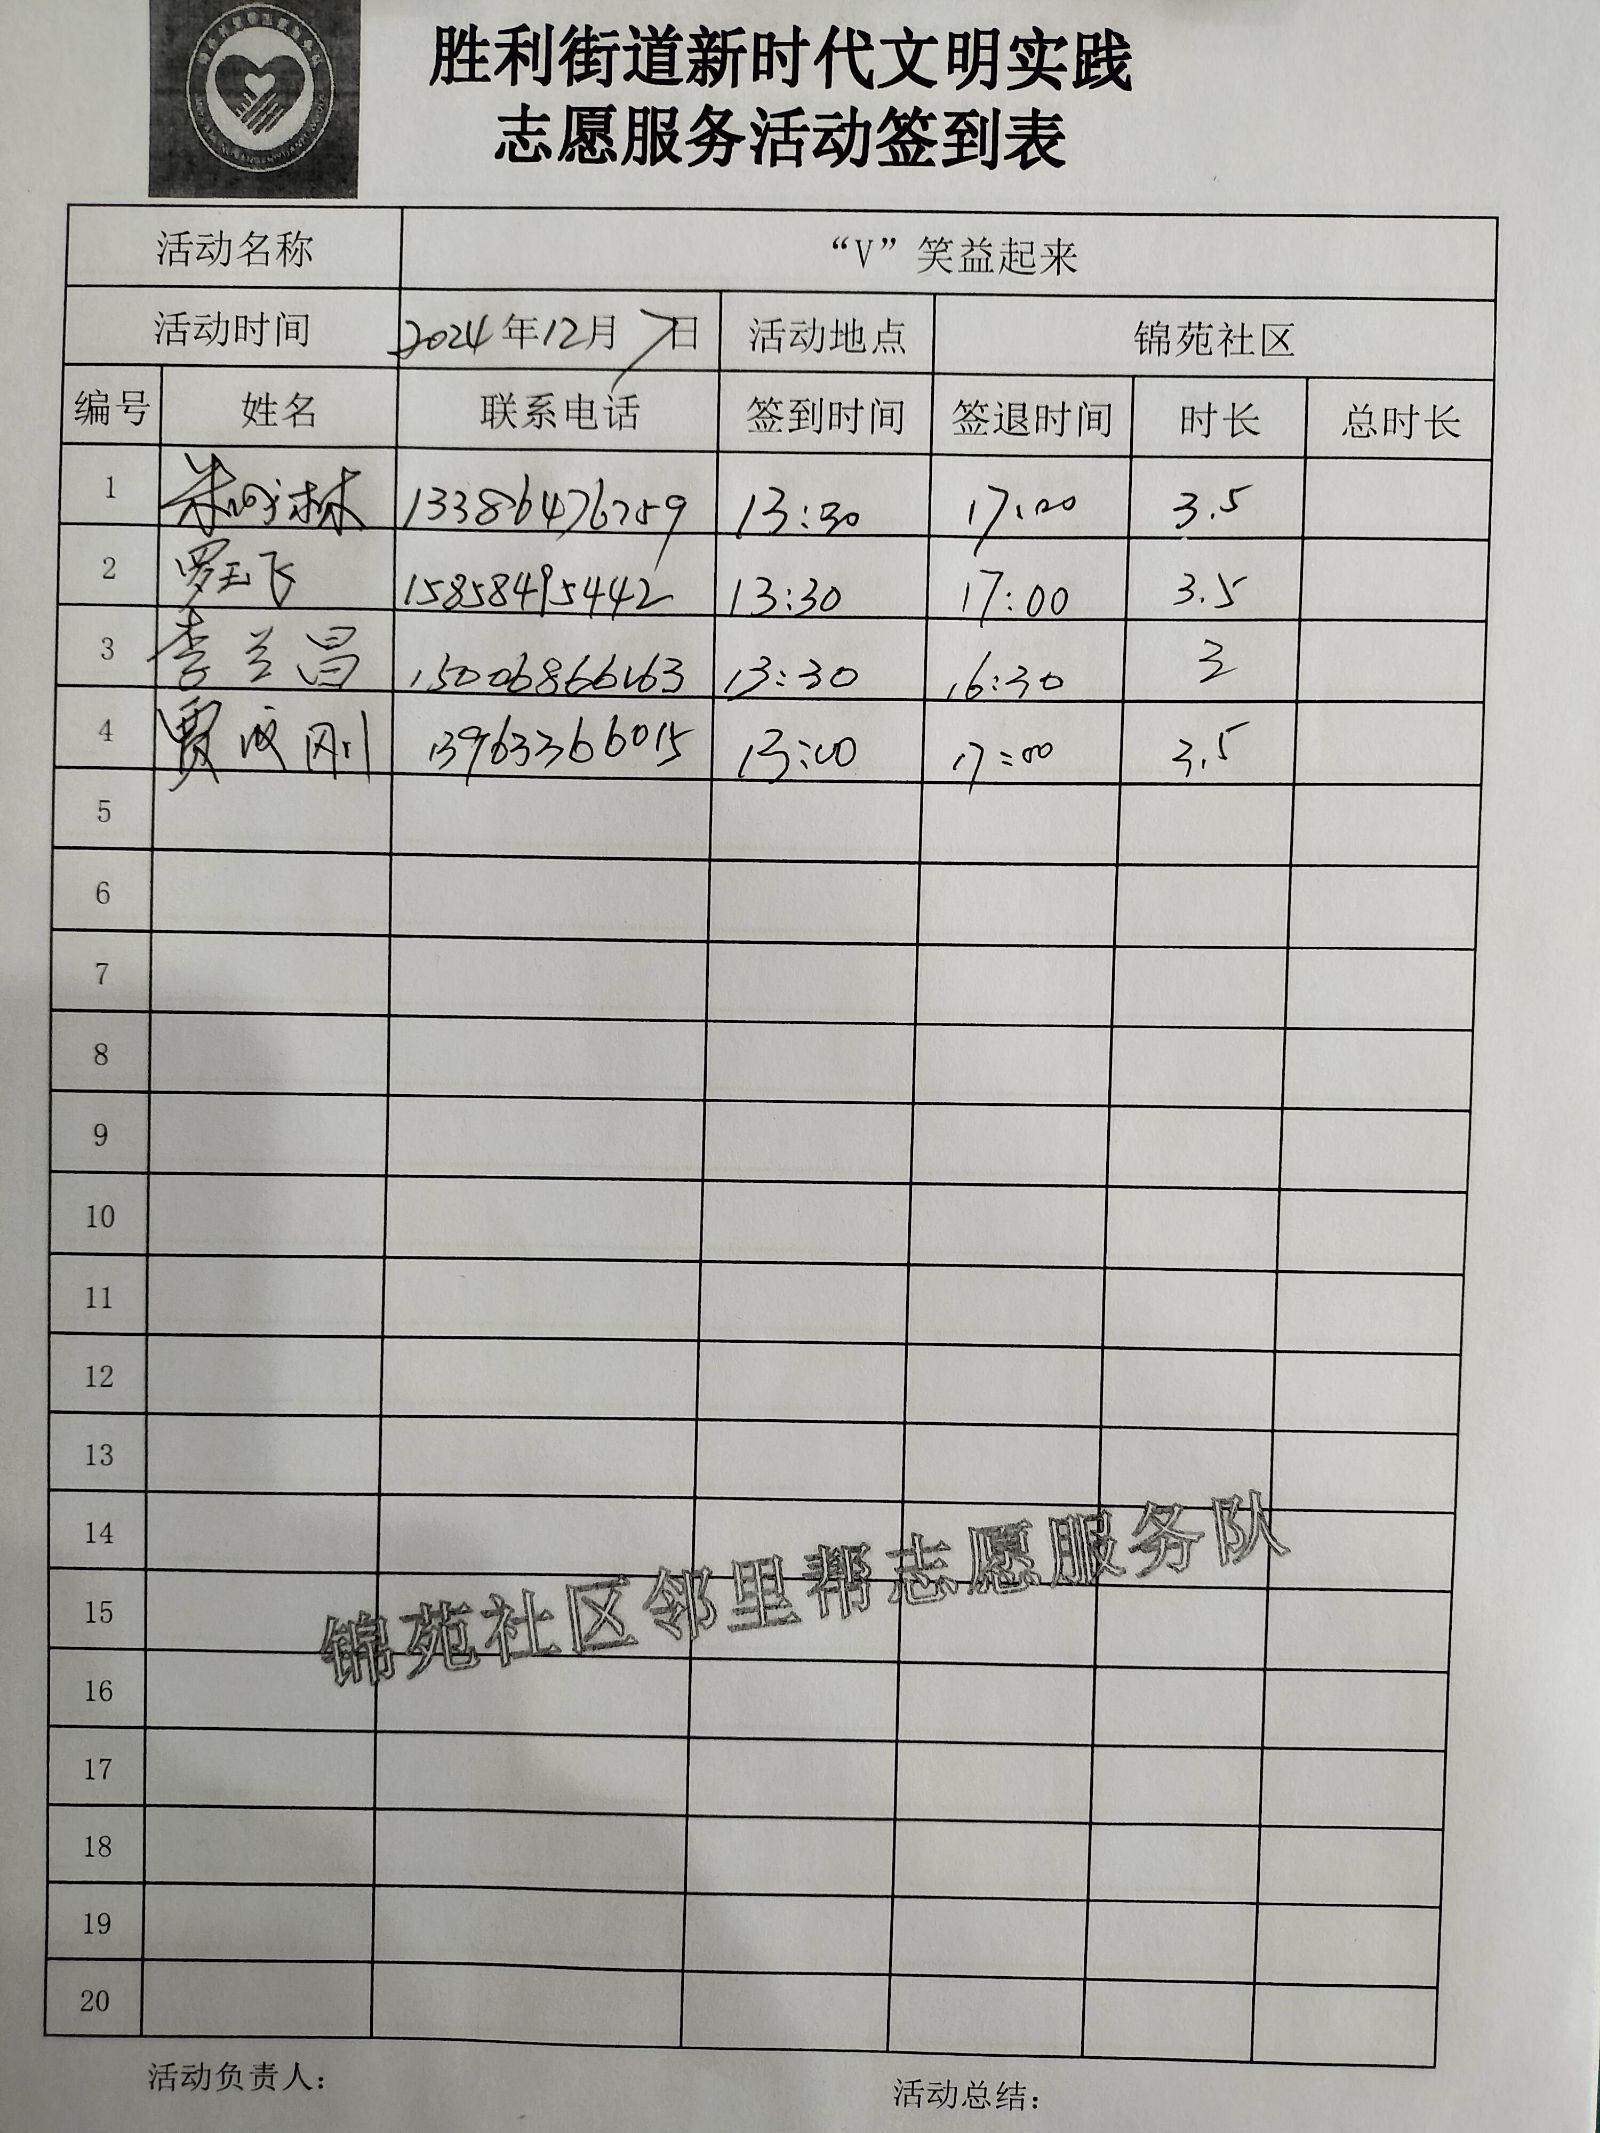 胜利街道新时代文明实践
志愿服务活动签到表
活动名称 “V”笑益起来
活动时间 2024年12月7日 活动地点 锦苑社区
编号 姓名 联系电话 签到时间 签退时间 时长 总时长
1 林 13386476259 13:30 17:00 3.5
2 罗玉飞 15858495442 13:30 17:00 3.5
3 李兰昌 15006866163 13:30 16:30 3
4 贾成刚 13963366015 13:00 17:00 3.5
5
6
7
8
9
10
11
12
13
14
15
16
17
18
19
20
锦苑社区邻里帮志愿服务队
活动负责人： 活动总结：